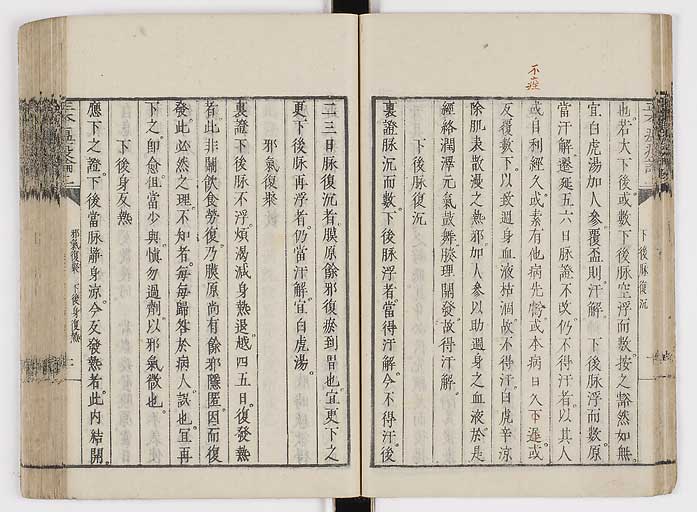 也。若大下後。或數下後。脉空浮而數。按之豁然如無。
宜白虎湯加人參。覆盃則汗解。下後脉浮而數。原
當汗解。遷延五六日。脉證不改。仍不得汗者。以其人
或自利經久。或素有他病先虧。或本病日久下遲。或
反覆數下。以致週身血液枯涸。故不得汗。白虎辛凉
除肌表散漫之熱邪。加人參以助週身之血液。於是
經絡潤澤。元氣鼓舞。腠理開發。故得汗解。
下後脉復沉
裏證脉沉而數。下後脉浮者。當得汗解。今不得汗。後
不痊
下後脉復沉
二三日脉復沉者。膜原餘邪復瘀到胃也。宜更下之
更下後脉再浮者。仍當汗解。宜白虎湯。
邪氣復聚
裏證下後。脉不浮。煩渴減。身熱退。越四五日。復發熱
者。此非關飲食勞復。乃膜原尚有餘邪隱匿。因而復
發。此必然之理。不知者。每每歸咎於病人。誤也。宜再
下之即愈。但當少與。慎勿過劑。以邪氣微也。
下後身反熱
應下之證。下後當脉靜身凉。今反發熱者。此內結開。
邪氣復聚 下後身復熱